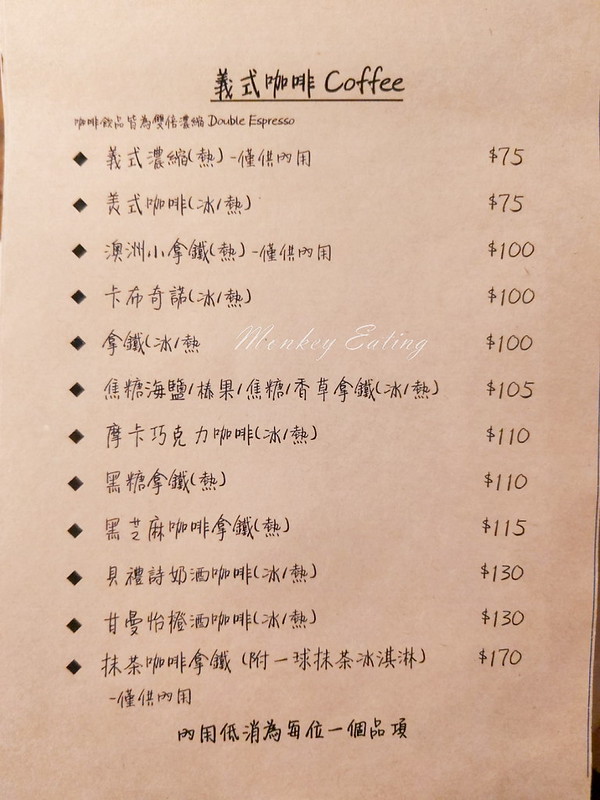 義式咖啡 Coffee
咖啡飲品皆為雙倍濃縮 Double Espresso
◆ 義式濃縮(熱) -僅供內用 $75
◆ 美式咖啡(冰/熱) $75
◆ 澳洲小拿鐵(熱) -僅供內用 $100
◆ 卡布奇諾(冰/熱) $100
◆ 拿鐵(冰/熱 $100
Monkey Eating
◆ 焦糖海鹽/榛果/焦糖/香草拿鐵(冰/熱) $105
◆ 摩卡巧克力咖啡(冰/熱) $110
◆ 黑糖拿鐵(熱) $110
◆ 黑芝麻咖啡拿鐵(熱) $115
◆ 貝禮詩奶酒咖啡(冰/熱) $130
◆ 甘曼怡橙酒咖啡(冰/熱) $130
◆ 抹茶咖啡拿鐵 (附一球抹茶冰淇淋) $170
-僅供內用
內用低消為每位一個品項